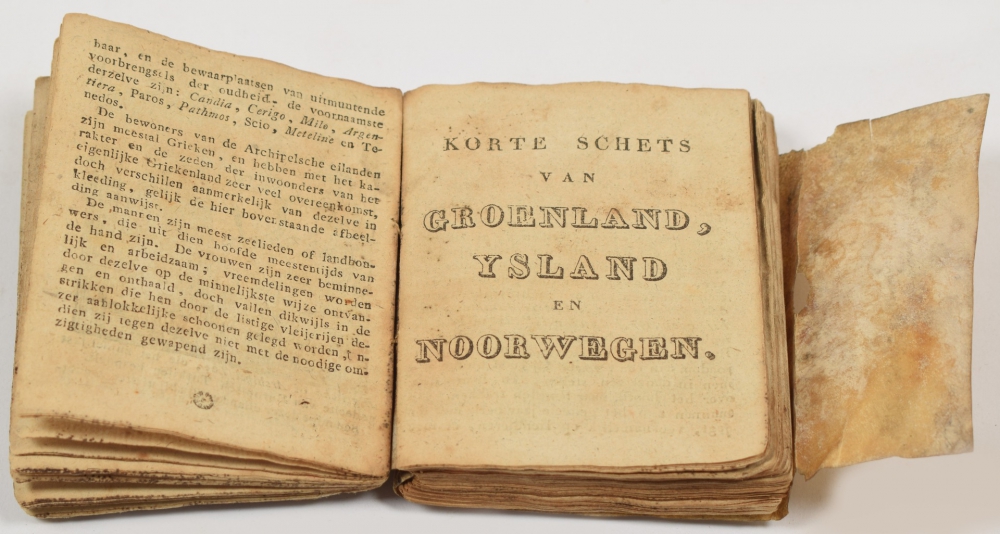 baar, en de bewaarplaatsen van uitmuntende
voorbrengsels der oudheid. de voornaamste
derzelve zijn: Candia, Cerigo, Milo, Argen-
tiera, Paros, Pathmos, Scio, Meteline en Te-
nedos.
De bewoners van de Archipelsche eilanden
zijn meestal Grieken, en hebben met het ka-
rakter en de zeden der inwoonders van het
eigenlijke Griekenland zeer veel overeenkomst,
doch verschillen aanmerkelijk van dezelve in
kleeding, gelijk de hier bovenstaande afbeel-
ding aanwijst.
De mannen zijn meest zeelieden of landbou-
wers, die uit dien hoofde meestentijds van
de hand zijn. De vrouwen zijn zeer beminne-
lijk en arbeidzaam; vreemdelingen worden
door dezelve op de minnelijkste wijze ontvan-
gen en onthaald, doch vallen dikwijls in de
strikken die hen door de listige vleijerijen de-
zer aanlokkelijke schoonen gelegd worden, in-
dien zij tegen dezelve niet met de noodige om-
zigtigheden gewapend zijn.
KORTE SCHETS
VAN
GROENLAND,
YSLAND
EN
NOORWEGEN.